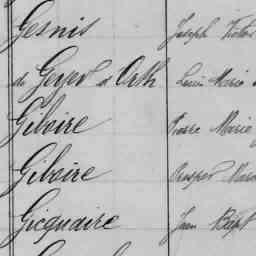 Gesnis Joseph Victor
de Geyer d'Orth Louis Marie
Giboire Pierre Marie
Giboire Prosper Marie
Gicquaire Jean Bapt